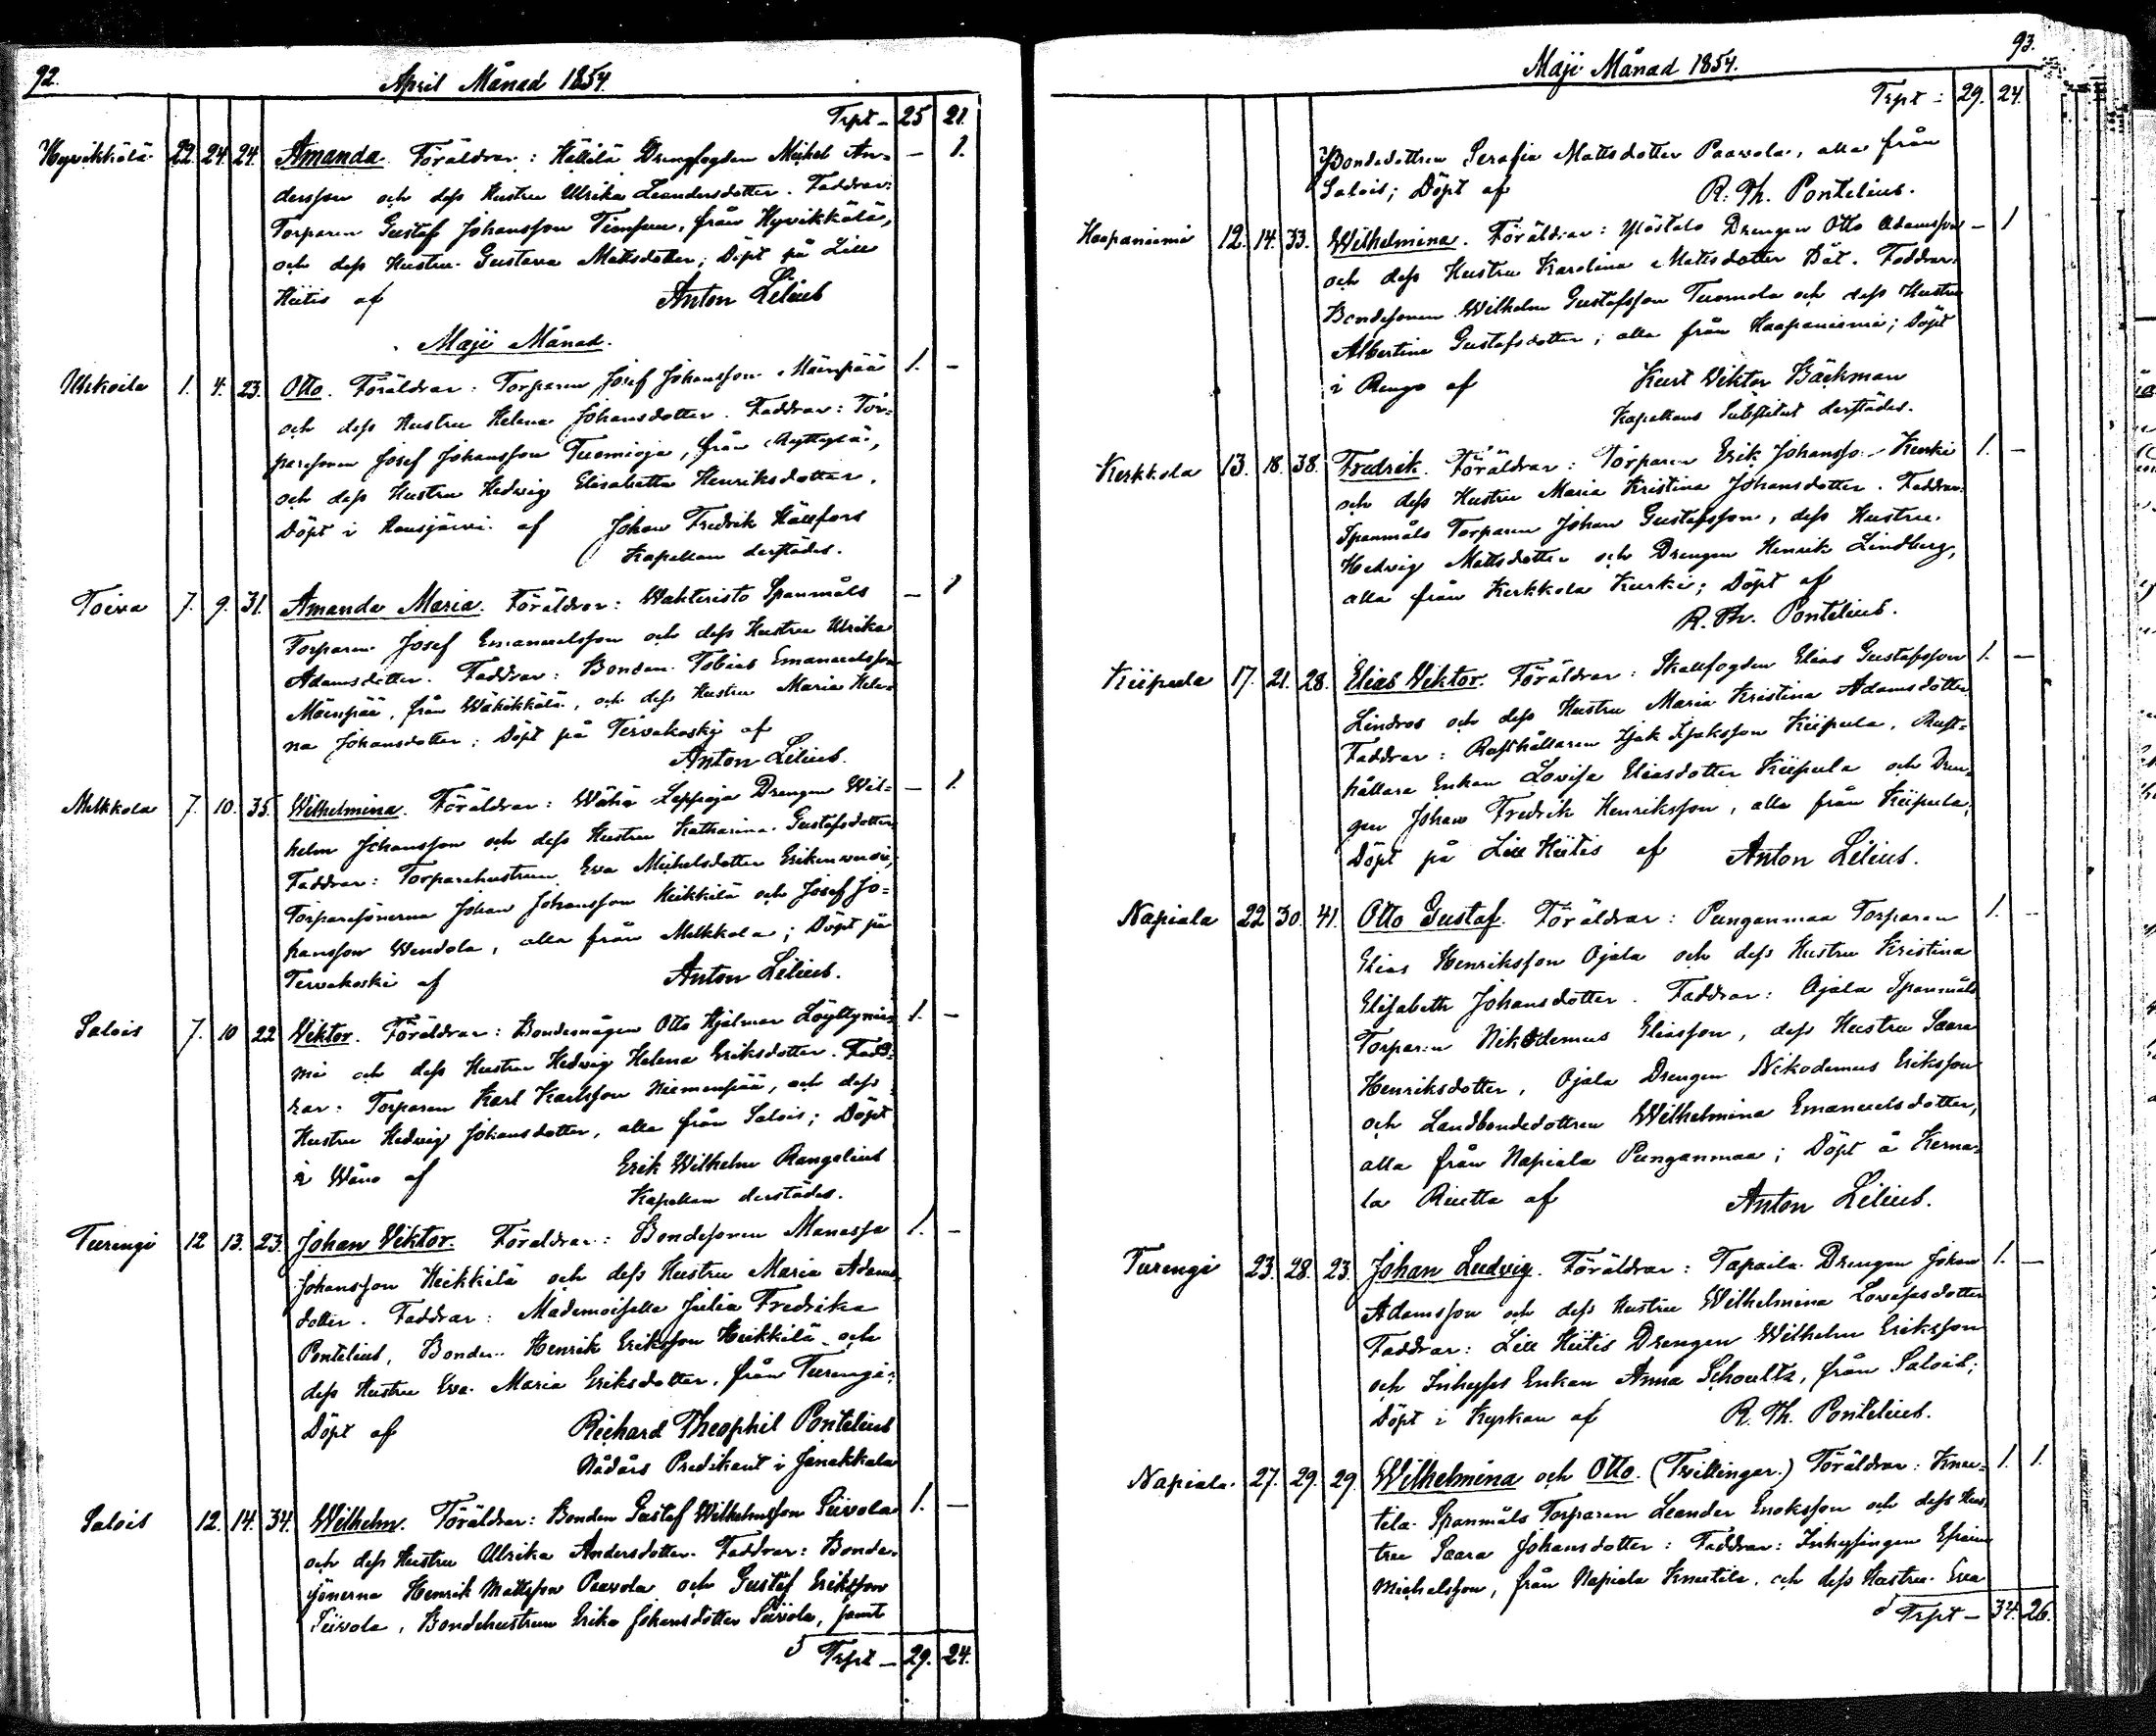 92.
April Månad 1854.
Trpt - 25 21.
Hyvikkälä 22. 24. 24. Amanda. Föräldrar: Hällilä Drengfogden Mickel An= — 1.
dersson och dess Hustru Ulrika Leandersdotter. Faddrar:
Torparen Gustaf Johansson, från Hyvikkälä,
och dess Hustru Gustava Mattsdotter; Döpt på Lill
Hiitis af Anton Lilius
Maji Månad.
Uhkoila 1. 4. 23. Otto. Föräldrar: Torparen Josef Johansson Mäenpää 1. —
och dess Hustru Helena Johansdotter. Faddrar: Tor=
paresonen Josef Johansson Tuomioja, från
och dess Hustru Hedvig Elisabetha Henriksdotter.
Döpt i Hausjärvi af Johan Fredrik Hällfors
Kapellan derstädes.
Toiva 7. 9. 31. Amanda Maria. Föräldrar: Wahteristo Spanmåls — 1
Torparen Josef Emanuelsson och dess Hustru Ulrika
Adamsdotter. Faddrar: Bonden Tobias Emanuelsson
Mäenpää, från Wähikkälä, och dess Hustru Maria Hele=
na Johansdotter; Döpt på Tervakoski af
Anton Lilius.
Melkkola 7. 10. 35. Wilhelmina. Föräldrar: Wähä Leppäja Drengen Wil= — 1.
helm Johansson och dess Hustru Katharina Gustafsdotter
Faddrar: Torparehustrun Eva Michelsdotter
Torparesönerna Johan Johansson Heikkilä och Josef Jo=
hansson Wendola, alla från Melkkola; Döpt på
Tervakoski af Anton Lilius.
Salois 7. 10 22 Viktor. Föräldrar: Bondemågen Otto Hjalmar Löyttynie= 1. —
mi och dess Hustru Hedvig Helena Eriksdotter. Fadd=
rar: Torparen Karl Karlsson Niemenpää, och dess
Hustru Hedvig Johansdotter, alla från Salois; Döpt
i Wånå af Erik Wilhelm Rangelius
Kapellan derstädes.
Turengi 12 13. 23. Johan Viktor. Föräldrar: Bondesonen Manasse 1. —
Johansson Heikkilä och dess Hustru Maria Adams=
dotter. Faddrar: Mademoiselle Julia Fredrika
Pontelius, Bonden Henrik Eriksson Heikkilä och
dess Hustru Eva Maria Eriksdotter, från Turengi;
Döpt af Richard Theophil Pontelius
Nådårs Predikant i Janakkala
Salois 12. 14. 34. Wilhelm. Föräldrar: Bonden Gustaf Wilhelmsson Siivola 1. —
och dess Hustru Ulrika Andersdotter. Faddrar: Bonde=
sönerna Henrik Mattsson Paavola och Gustaf Eriksson
Siivola, Bondehustrun Erika Johansdotter Siivola, samt
Trpt - 29. 24.
93.
Maji Månad 1854.
Trpt - 29. 24.
Bondedottren Serafia Mattsdotter Paavola, alla från
Salois; Döpt af R. Th. Pontelius.
Haapaniemi 12. 14. 33. Wilhelmina. Föräldrar: Ylöstalo Drengen Otto Adamsson — 1
och dess Hustru Karolina Mattsdotter Båt. Faddrar:
Bondesonen Wilhelm Gustafsson Tuomola och dess Hustru
Albertina Gustafsdotter, alla från Haapaniemi; Döpt
i Rengo af Kurt Viktor Bäckman
Kapellans Substitut derstädes.
Kerkkola 13. 18. 38. Fredrik. Föräldrar: Torparen Erik Johansson Kurki 1. —
och dess Hustru Maria Kristina Johansdotter. Faddrar:
Spanmåls Torparen Johan Gustafsson, dess Hustru
Hedvig Mattsdotter och Drengen Henrik Lindberg,
alla från Kerkkola Kurki; Döpt af
R. Th. Pontelius.
Kiipula 17. 21. 28. Elias Viktor. Föräldrar: Skallfogden Elias Gustafsson 1. —
Lindros och dess Hustru Maria Kristina Adamsdotter
Faddrar: Rusthållaren Isak Isaksson Kiipula, Rust=
hållare Enkan Lovisa Eliasdotter Kiipula och Dren=
gen Johan Fredrik Henriksson, alla från Kiipula;
Döpt på Lill Hiitis af Anton Lilius.
Napiala 22 30. 41. Otto Gustaf. Föräldrar: Punganmaa Torparen 1. —
Elias Henriksson Ojala och dess Hustru Kristina
Elisabeth Johansdotter. Faddrar: Ojala Spanmåls
Torparen Nikodemus Eliasson, dess Hustru Saara
Henriksdotter, Ojala Drengen Nikodemus Eriksson
och Landbondedottren Wilhelmina Emanuelsdotter,
alla från Napiala Punganmaa; Döpt å Kerna=
la Riutta af Anton Lilius.
Turengi 23. 28. 23. Johan Ludvig. Föräldrar: Tapaila Drengen Johan 1. —
Adamsson och dess Hustru Wilhelmina Lovisasdotter
Faddrar: Lill Hiitis Drengen Wilhelm Eriksson
och Inhyses Enkan Anna Schoultz, från Salois;
Döpt i Kyrkan af R. Th. Pontelius.
Napiala 27. 29. 29. Wilhelmina och Otto. (Tvillingar.) Föräldrar: Knu= 1. 1.
tila Spanmåls Torparen Leander Enoksson och dess Hus=
tru Saara Johansdotter: Faddrar: Inhysingen Efraim
Michelsson, från Napiala Knutila, och dess Hustru Eva
Trpt - 34. 26.